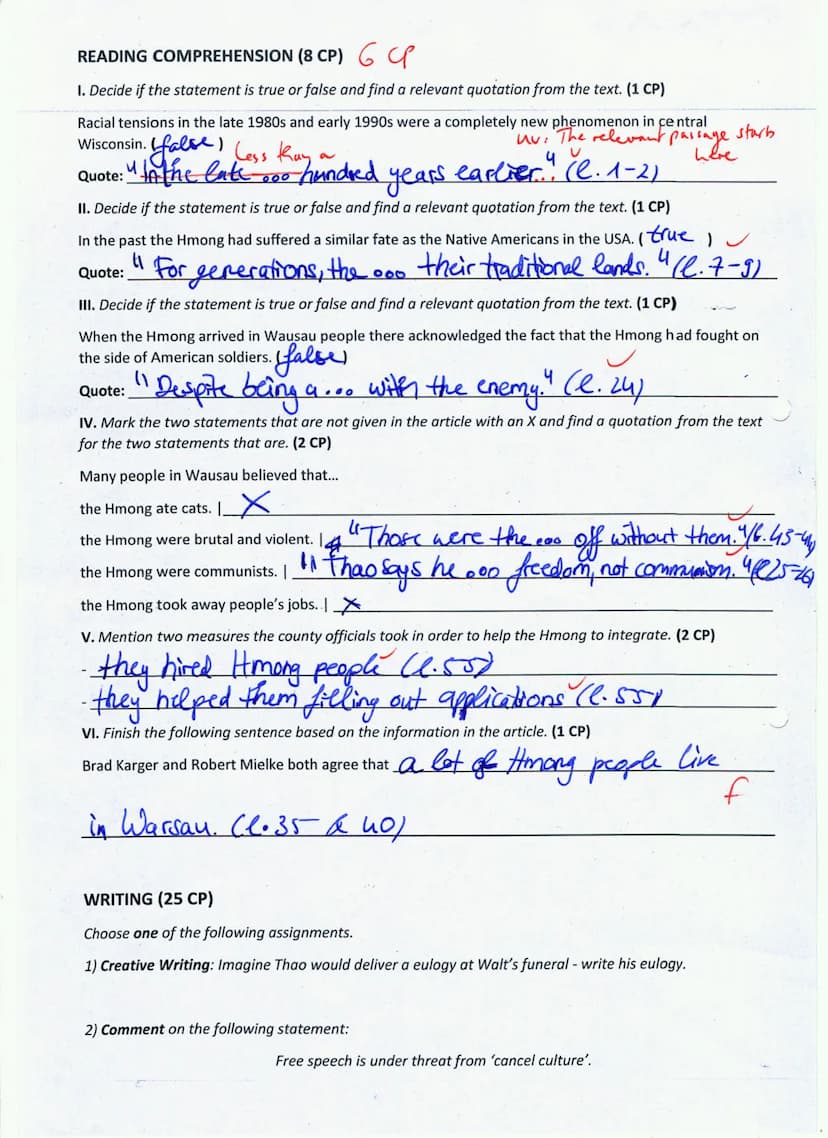 READING COMPREHENSION (8 CP) 6 CP
I. Decide if the statement is true or false and find a relevant quotation from the text. (1 CP)
Racial tensions in the late 1980s and early 1990s were a completely new phenomenon in central
uv: The relevant passage starts
Wisconsin. (false) Less than a here
Quote: "In the late ... hundred years earlier." (l. 1-2)
II. Decide if the statement is true or false and find a relevant quotation from the text. (1 CP)
In the past the Hmong had suffered a similar fate as the Native Americans in the USA. (true) ✓
Quote: "For generations, the ... their traditional lands." (l. 7-9)
III. Decide if the statement is true or false and find a relevant quotation from the text. (1 CP)
When the Hmong arrived in Wausau people there acknowledged the fact that the Hmong had fought on
the side of American soldiers. (false) ✓
Quote: "Despite being a ... with the enemy." (l. 24)
IV. Mark the two statements that are not given in the article with an X and find a quotation from the text
for the two statements that are. (2 CP)
Many people in Wausau believed that...
the Hmong ate cats. | X
the Hmong were brutal and violent. | "Those were the ... off without them." (l. 43-44)
the Hmong were communists. | "Thao says he ... freedom, not communism." (l. 25-26)
the Hmong took away people's jobs. | X
V. Mention two measures the county officials took in order to help the Hmong to integrate. (2 CP)
- they hired Hmong people ✓ (l. 55)
- they helped them filling out applications ✓ (l. 55)
VI. Finish the following sentence based on the information in the article. (1 CP)
Brad Karger and Robert Mielke both agree that a lot of Hmong people live
f
in Warsau. (l. 35 & 40)
WRITING (25 CP)
Choose one of the following assignments.
1) Creative Writing: Imagine Thao would deliver a eulogy at Walt's funeral - write his eulogy.
2) Comment on the following statement:
Free speech is under threat from 'cancel culture'.